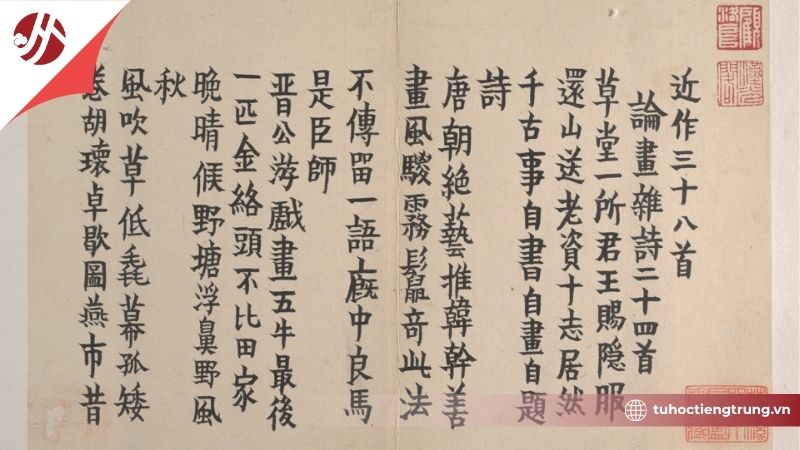 顧洛阜
漢光閣
近作三十八首
論畫雜詩二十四首
草堂一所君王賜隠服
還山送老資十志居然
千古事自書自畫自題
詩
唐朝絕藝推韓幹善
畫風騣霧鬛竒此法
不傳留一語厩中良馬
是臣師
晉公游戲畫五牛最後
一匹金絡頭不比田家
晚晴候野塘浮鼻野風
秋
風吹草低毳幕孤矮
胡瓌卓歇圖燕市昔
tuhoctiengtrung.vn